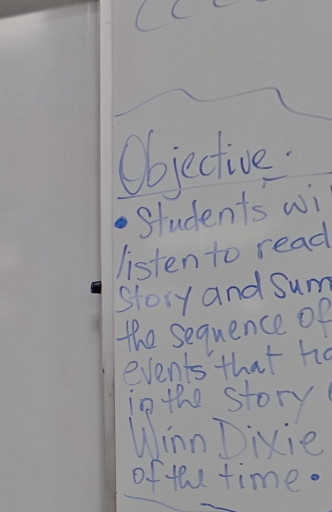 Objective:
• Students wi
listen to read
story and sum
the sequence of
events that ha
in the story
Winn Dixie
of the time.